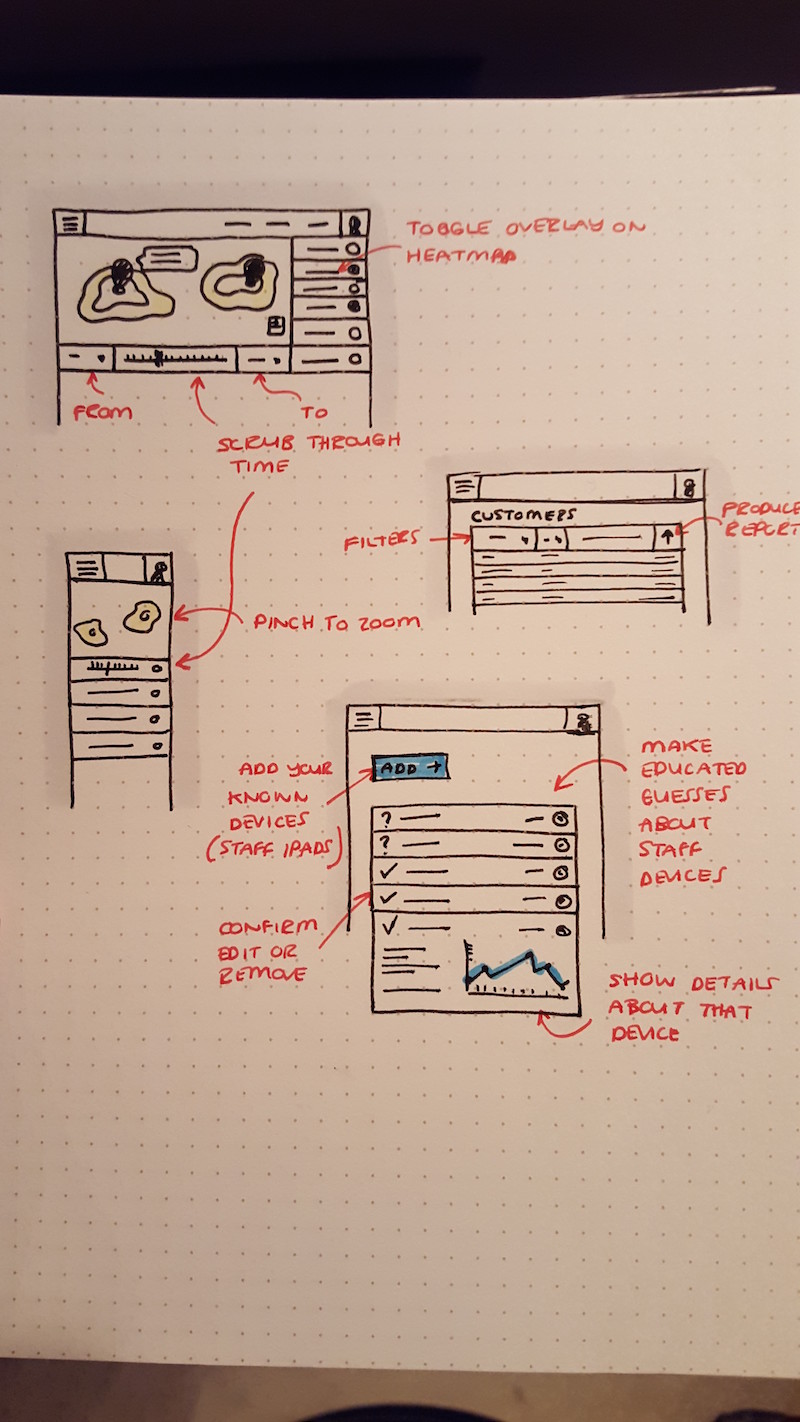 TOGGLE OVERLAY ON
HEATMAP
FROM
TO
SCRUB THROUGH
TIME
CUSTOMERS
FILTERS
PRODUCE
REPORT
PINCH TO ZOOM
ADD YOUR
KNOWN
DEVICES
(STAFF IPADS)
ADD +
MAKE
EDUCATED
GUESSES
ABOUT
STAFF
DEVICES
?
?
CONFIRM
EDIT OR
REMOVE
SHOW DETAILS
ABOUT THAT
DEVICE